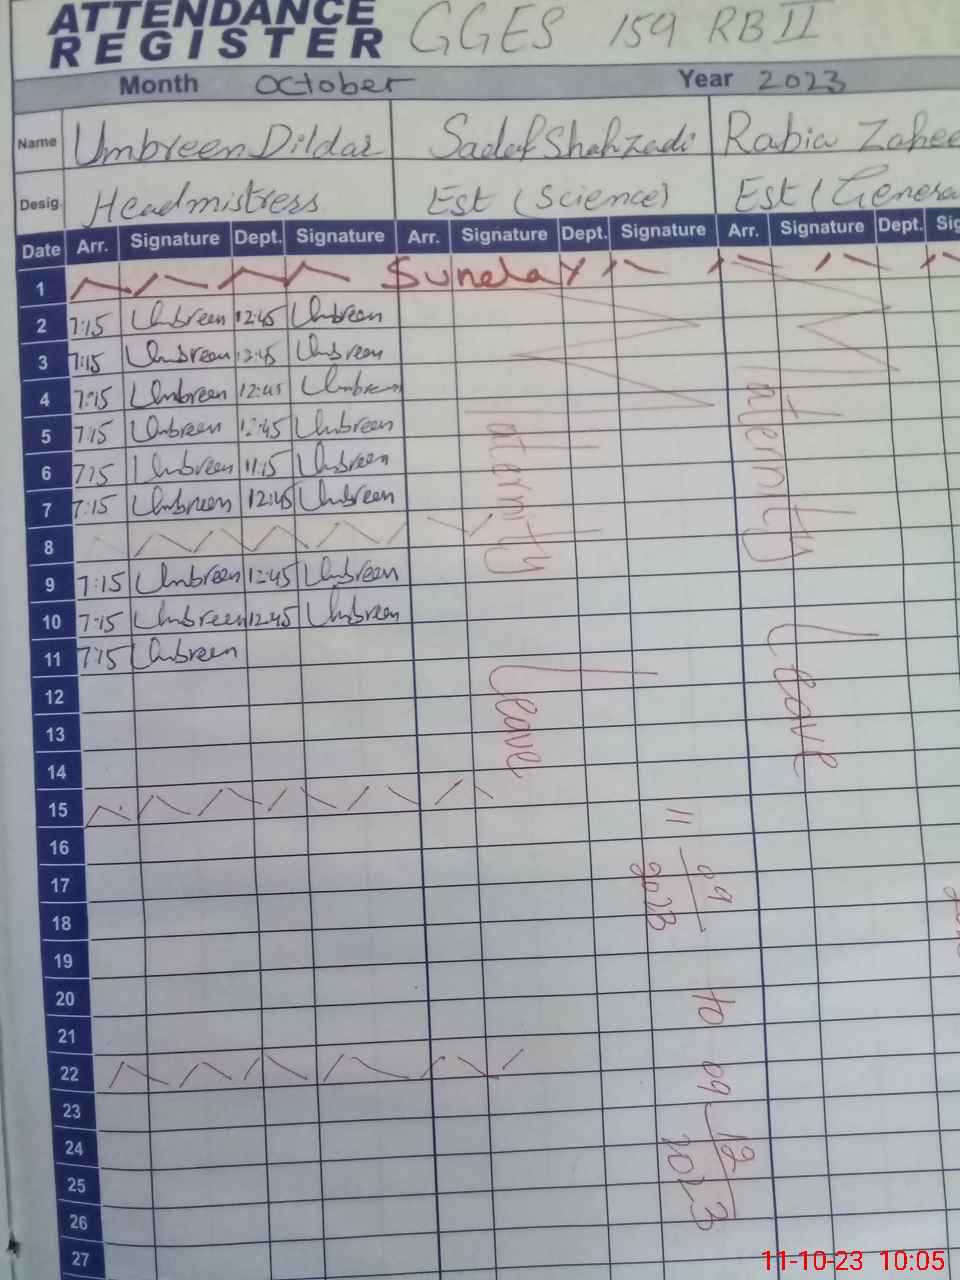 ATTENDANCE REGISTER GGES 159 RB II
Month October Year 2023
Name Umbreen Dildar Sadaf Shahzadi Rabia
Desig. Headmistress Est (Science) Est (
Date Arr. Signature Dept. Signature Arr. Signature Dept. Signature Arr. Signature Dept.
1 Sunday
2 7:15 Umbreen 12:45 Umbreen
3 7:15 Umbreen 12:45 Umbreen
4 7:15 Umbreen 12:45 Umbreen
5 7:15 Umbreen 12:45 Umbreen
6 7:15 Umbreen 11:15 Umbreen
7 7:15 Umbreen 12:45 Umbreen
8
9 7:15 Umbreen 12:45 Umbreen
10 7:15 Umbreen 12:45 Umbreen
11 7:15 Umbreen
12
13
14
15
16
17
18
19
20
21
22
23
24
25
26
27
Maternity Leave
11-09-2023 to 09-12-2023
Maternity Leave
11-10-23 10:05